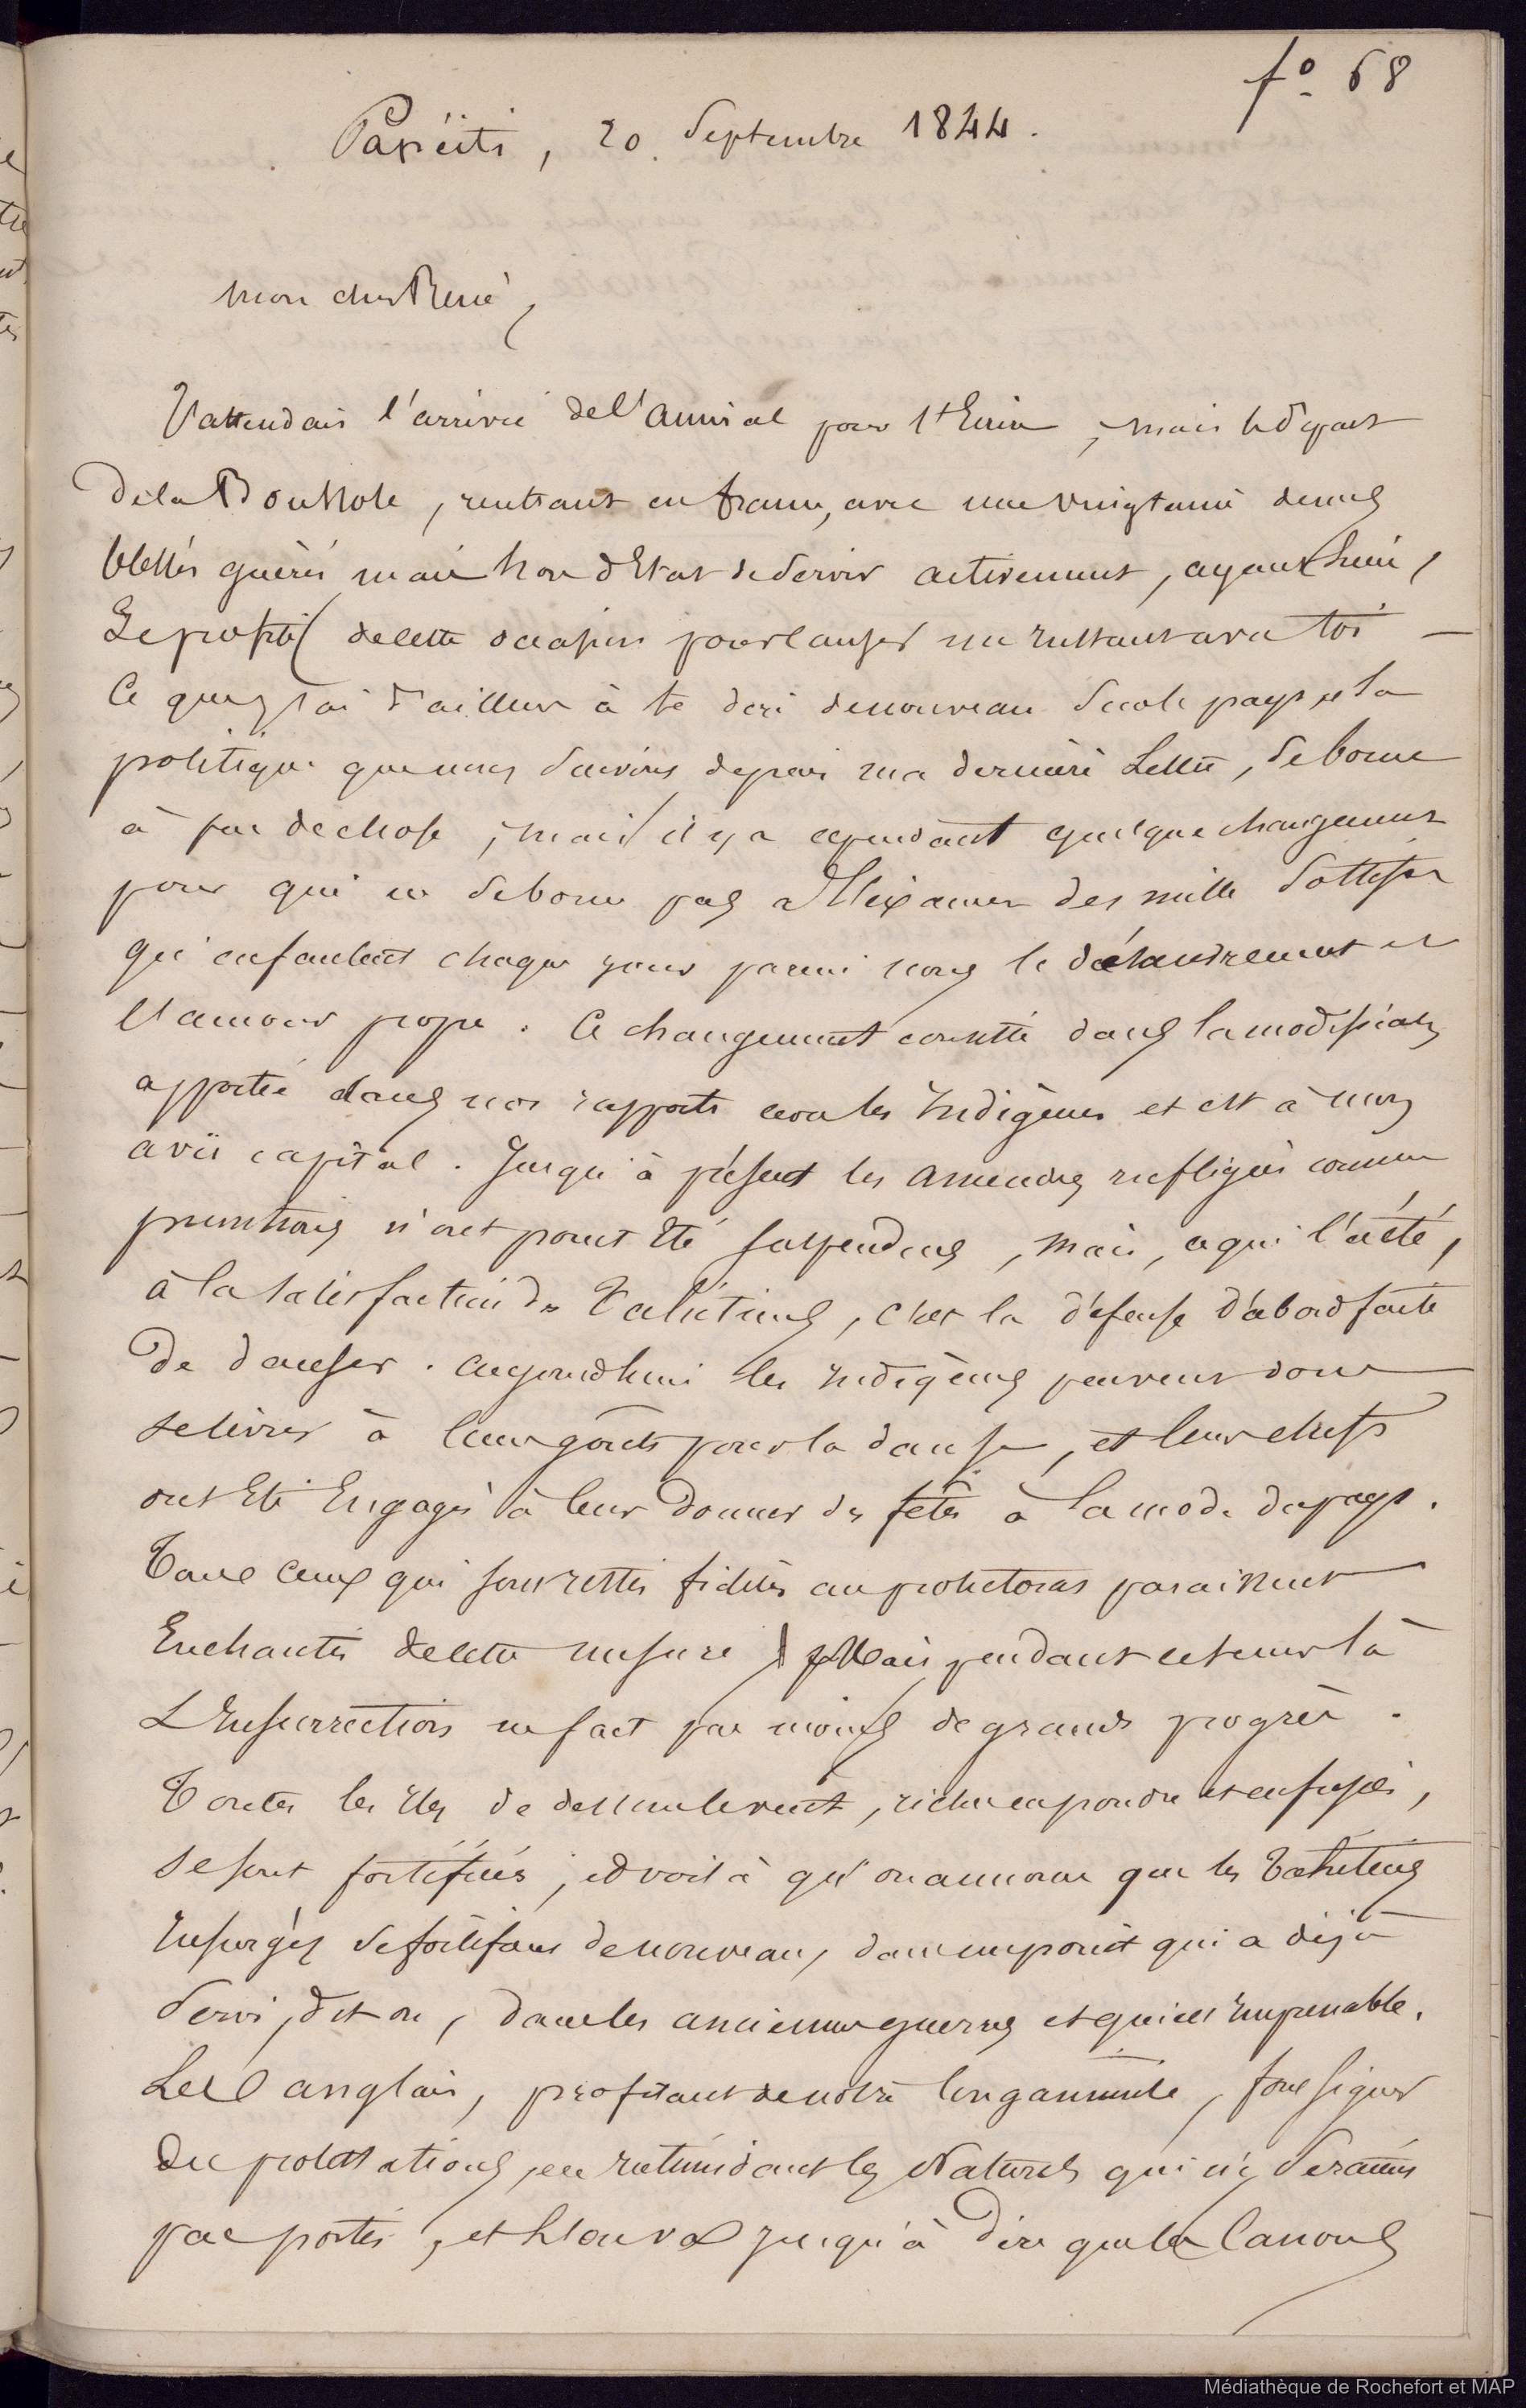 fo 68
Papéiti, 20 Septembre 1844.
Mon cher René,
J'attendais l'arrivée de l'amiral pour t'Ecrire, mais le départ
de la Boussole, rentrant en france, avec une vingtaine de nos
blessés guéris mais hors d'Etat de servir activement, ayant lieu,
Je profite de cette occasion pour causer un instant avec toi —
Ce que j'ai d'ailleurs à te dire de nouveau sur le pays et la
politique que nous suivons depuis ma dernière Lettre, se borne
à peu de chose; mais il y a cependant quelque changement
pour qui ne se borne pas à des mille sottises
qu'enfantent chaque jour parmi nous le désoeuvrement et
l'amour propre. Ce changement consiste dans la modification
apportée dans nos rapports avec les Indigènes et est à mon
avis capital. Jusqu'à présent les amendes infligées comme
punitions n'ont point été suspendues, mais, ce qui l'a été,
à la satisfaction des Tahitiens, c'est la défense d'abord faite
de danser. aujourd'hui les Indigènes peuvent donc
se livrer à leurs goûts pour la danse, et leurs chefs
ont été Engagés à leur donner des fêtes à la mode du pays.
Tous ceux qui sont restés fidèles au protectorat paraissent
Enchantés de cette mesure. Mais pendant ce temps là
L'Insurrection ne fait pas moins de grands progrès.
Toutes les Iles de dessous le vent, riches en poudre et en fusils,
se sont fortifiées, et voilà qu'on annonce que les Tahitiens
Insurgés se fortifient de nouveau, dans un point qui a déjà
servi, dit on, dans les anciennes guerres et qui est Imprenable.
Les anglais, profitant de notre longanimité, font signer
des protestations, en intimidant les Naturels qui n'y seraient
pas portés, et l'on va jusqu'à dire que les Canons
Médiathèque de Rochefort et MAP